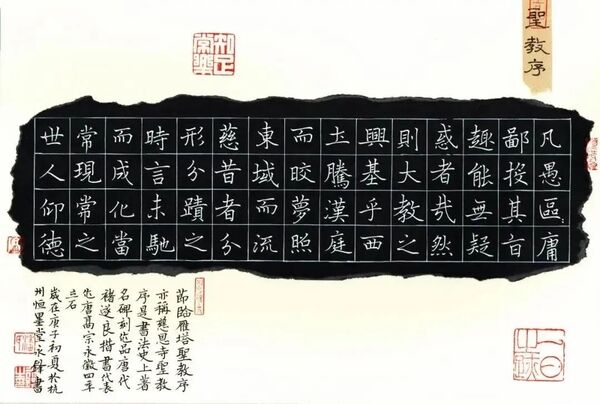 聖教序
知足常樂
凡愚區々庸
鄙投其旨
趣能無疑
惑者哉然
則大教之
興基乎西
土騰漢庭
而皎夢照
東域而流
慈昔者分
形分蹟之
時言未馳
而成化當
常現常之
世人仰德
節臨雁塔聖教序
亦稱慈恩寺聖教
序是書法史上著
名碑刻作品唐代
褚遂良楷書代表
作唐高宗永徽四年
立石
歲在庚子初夏於杭
州恒墨堂永鋒書